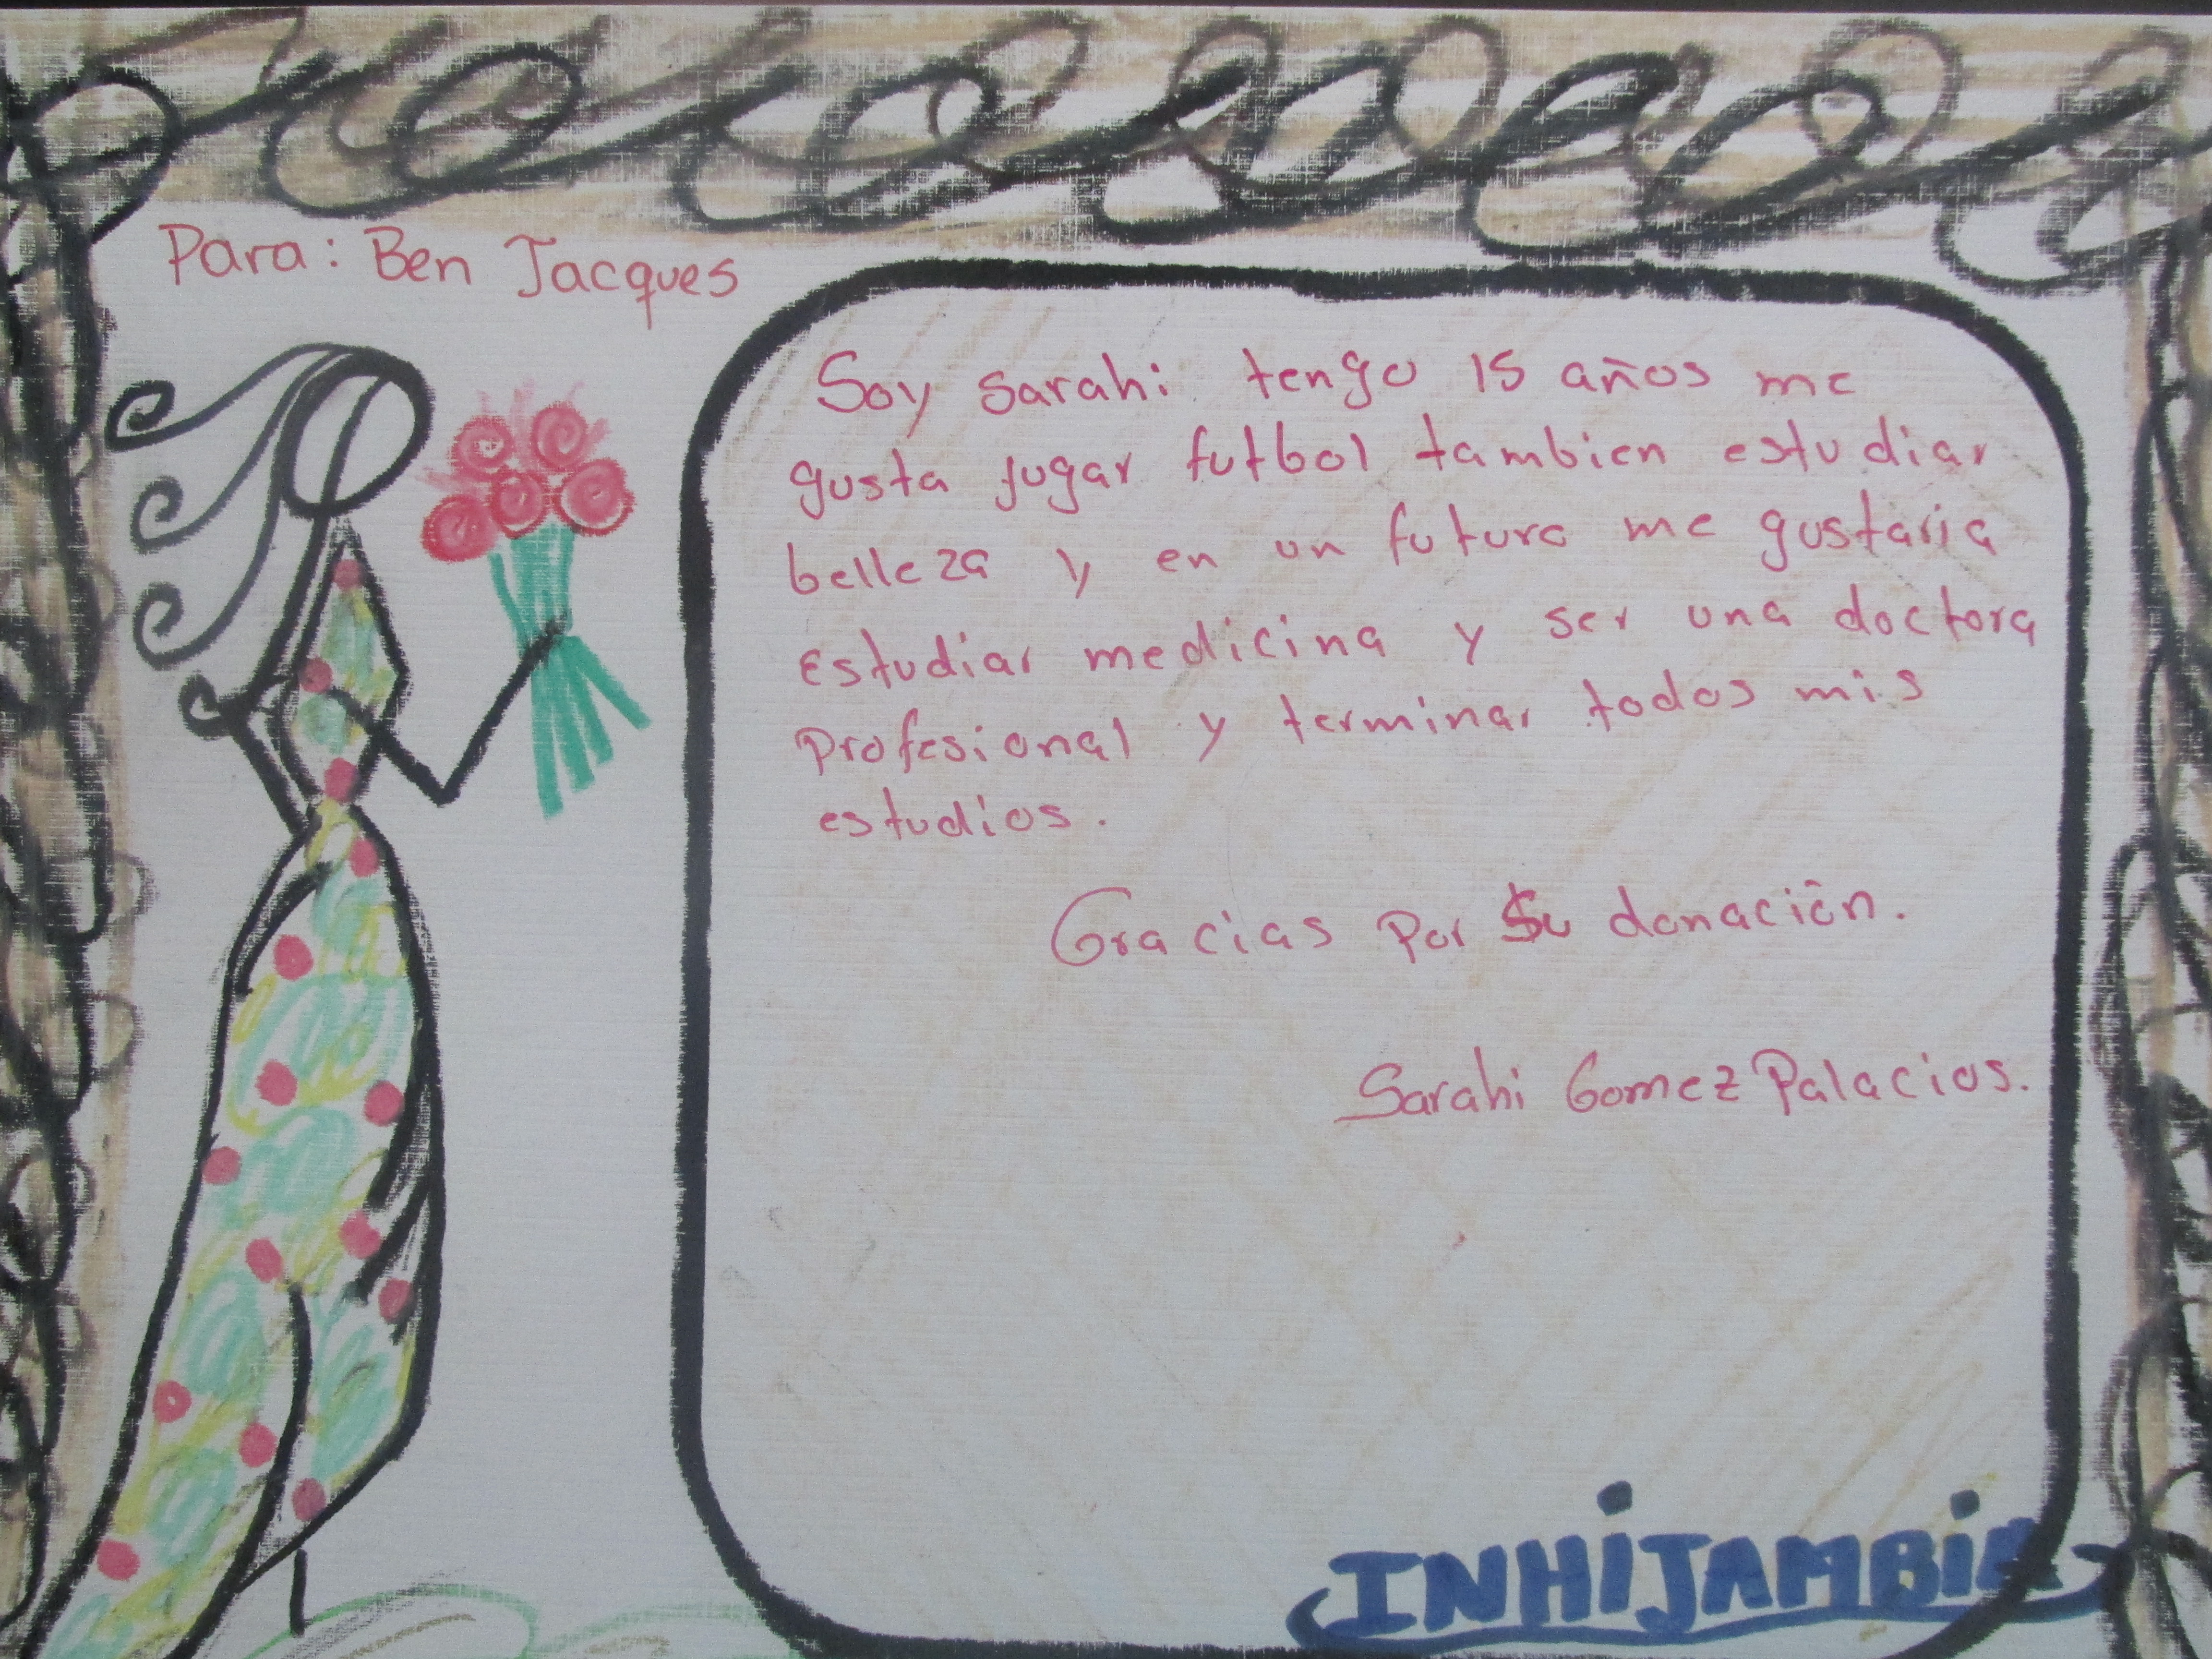 Para: Ben Jacques
Soy Sarahi tengo 15 años me
gusta jugar futbol tambien estudiar
belleza y en un futuro me gustaria
estudiar medicina y ser una doctora
profesional y terminar todos mis
estudios.
Gracias por su donación.
Sarahi Gomez Palacios.
INHIJAMBIA